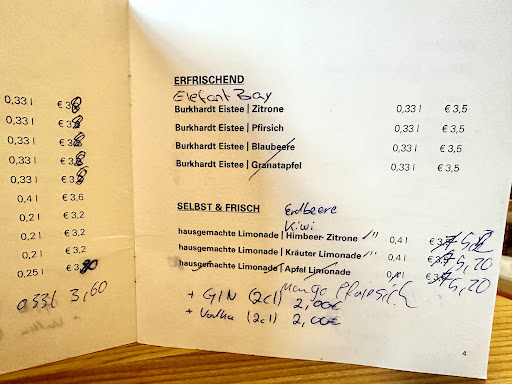 0,33 l € 3,8
0,33 l € 3,8
0,33 l € 3,8
0,33 l € 3,8
0,33 l € 3,8
0,4 l € 3,6
0,2 l € 3,2
0,2 l € 3,2
0,2 l € 3,2
0,25 l € 3,80
0,33 l 3,60
ERFRISCHEND
Elefant Bay
Burkhardt Eistee | Zitrone 0,33 l € 3,5
Burkhardt Eistee | Pfirsich 0,33 l € 3,5
Burkhardt Eistee | Blaubeere 0,33 l € 3,5
Burkhardt Eistee | Granatapfel 0,33 l € 3,5
SELBST & FRISCH Erdbeere
Kiwi
hausgemachte Limonade | Himbeer- Zitrone 0,4 l
hausgemachte Limonade | Kräuter Limonade 0,4 l 5,20
hausgemachte Limonade | Apfel Limonade 5,20
Mango Pfirsich
+ GIN (2cl) 2,00€
+ Vodka (2cl) 2,00€
4